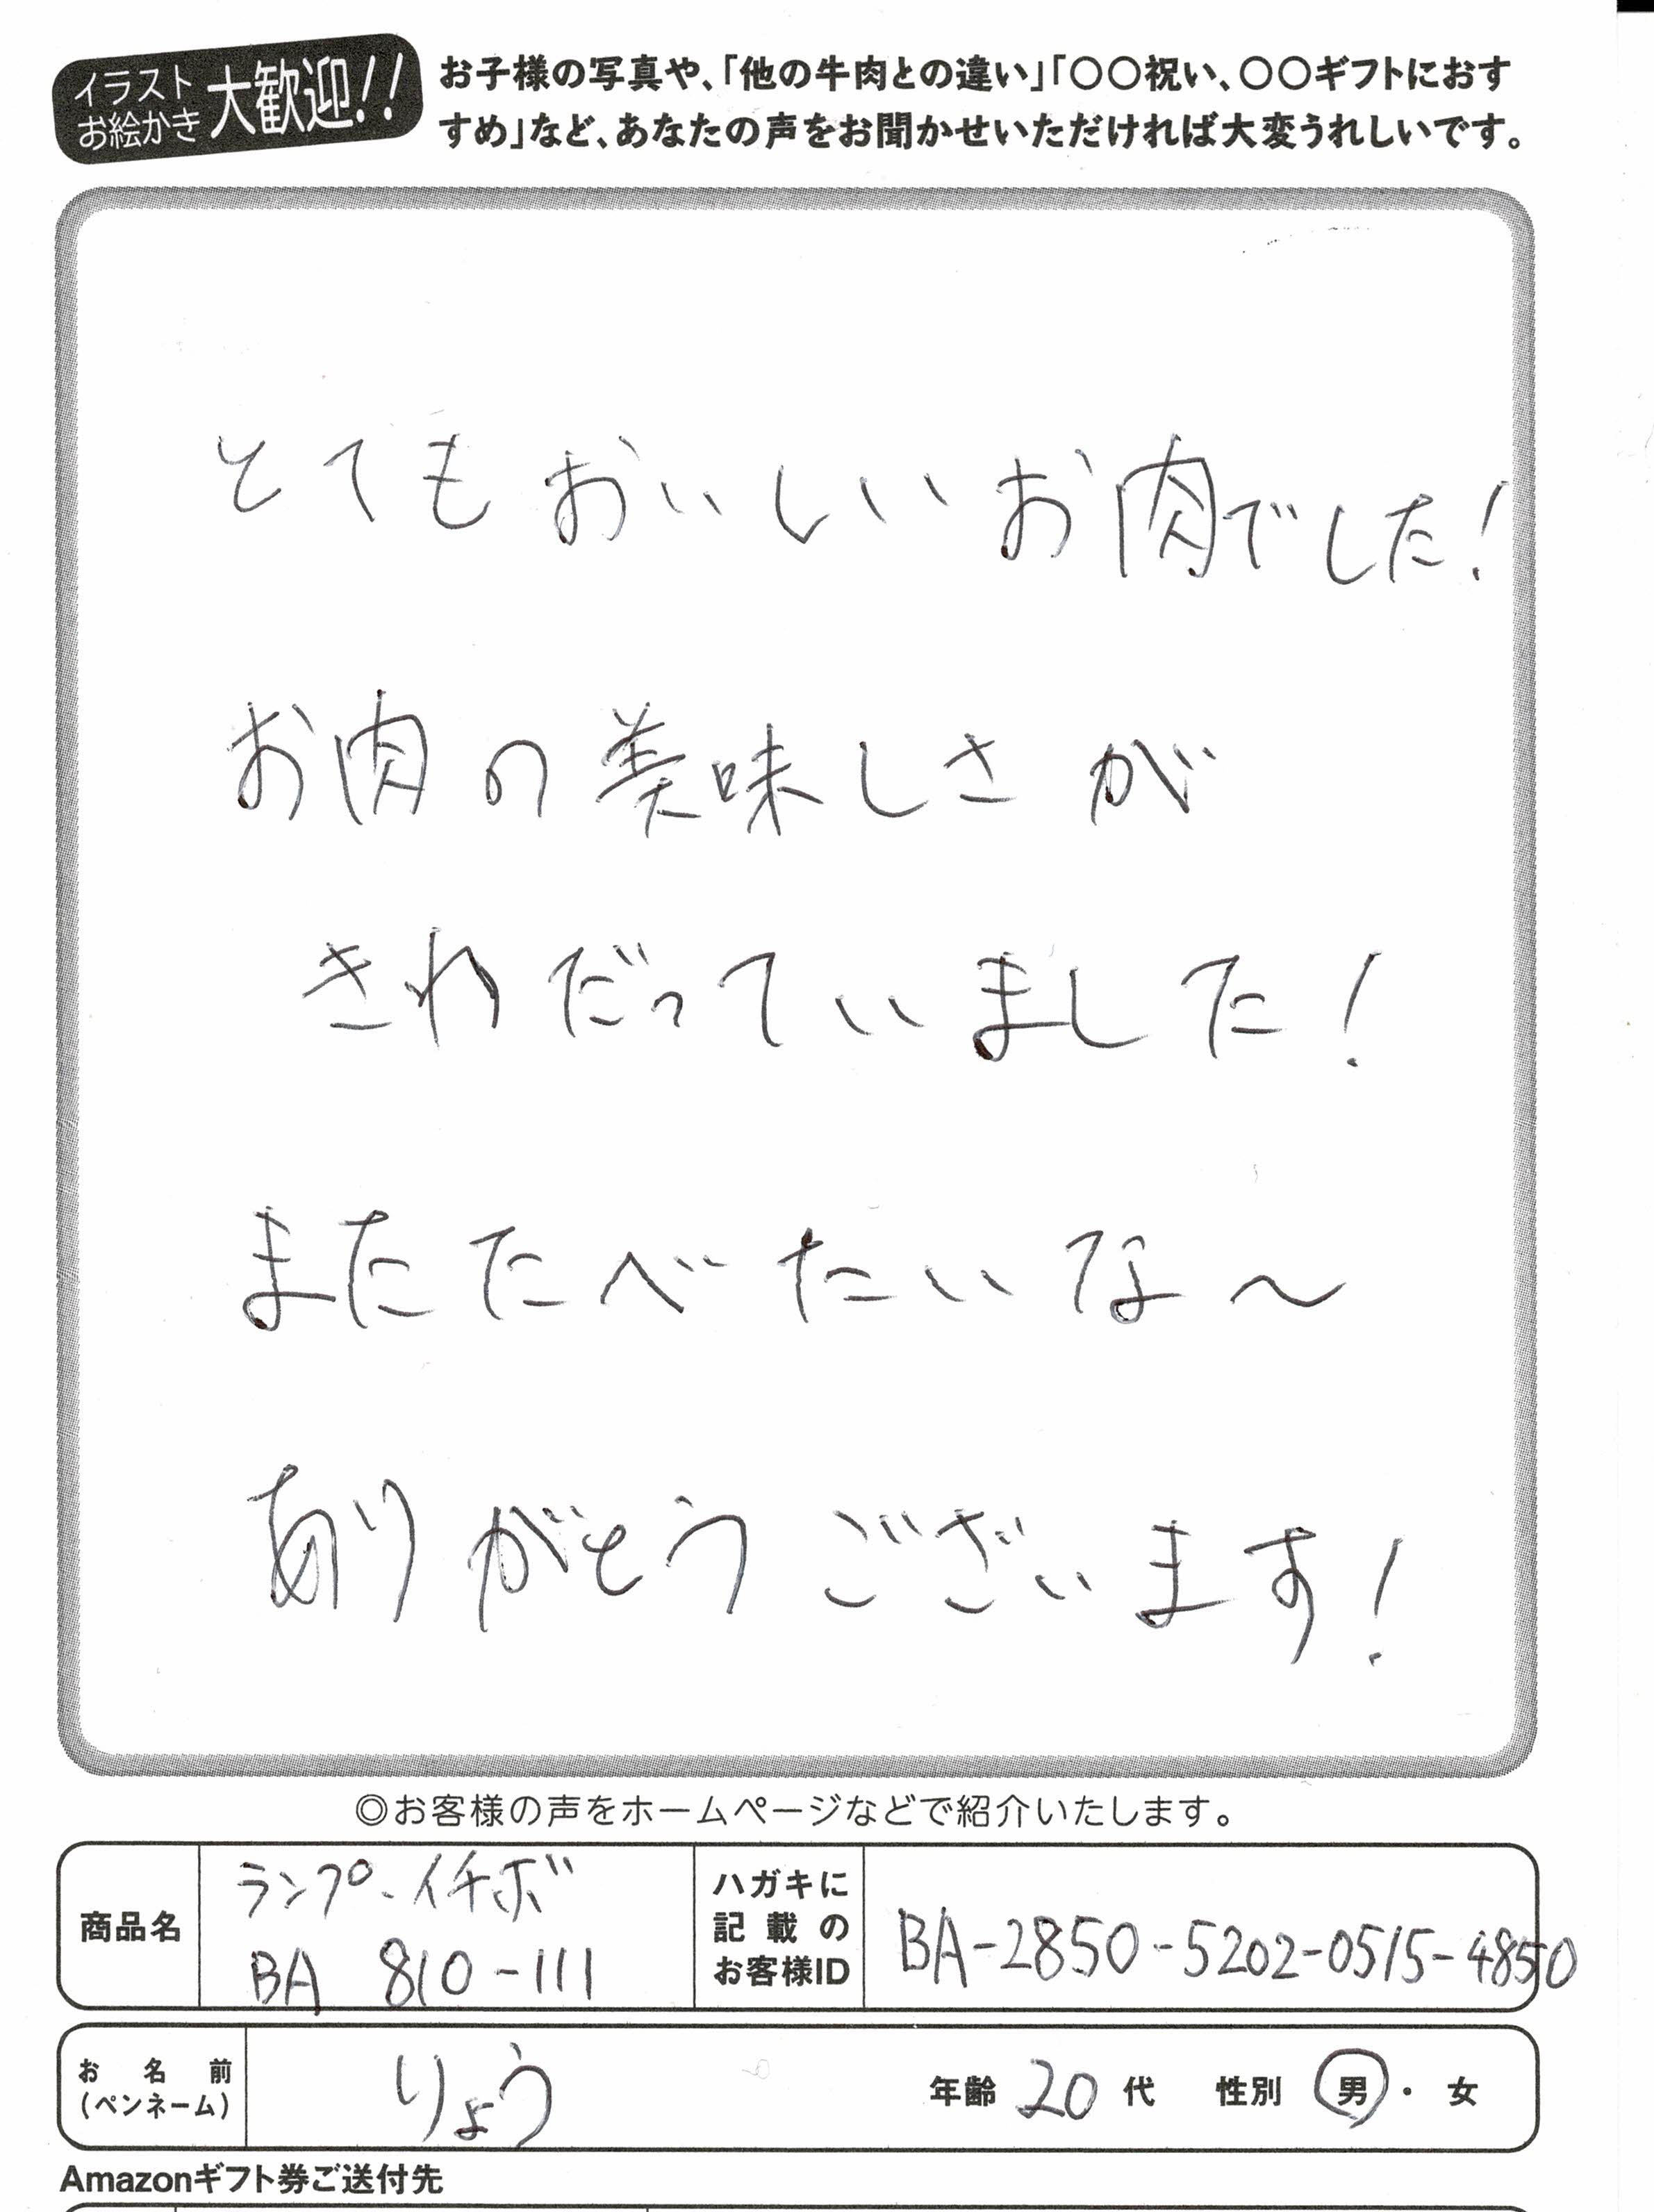 イラスト
お絵かき
大歓迎!!
お子様の写真や、「他の牛肉との違い」「〇〇祝い、〇〇ギフトにおす
すめ」など、あなたの声をお聞かせいただければ大変うれしいです。
とてもおいしいお肉でした!
お肉の美味しさが
きわだっていました!
またたべたいな〜
ありがとうございます!
◎お客様の声をホームページなどで紹介いたします。
商品名
ランプ、イチボ
BA 810-111
ハガキに
記載の
お客様ID
BA-2850-5202-0515-4850
お名前
(ペンネーム)
りょう
年齢 20 代 性別 男・女
Amazonギフト券ご送付先